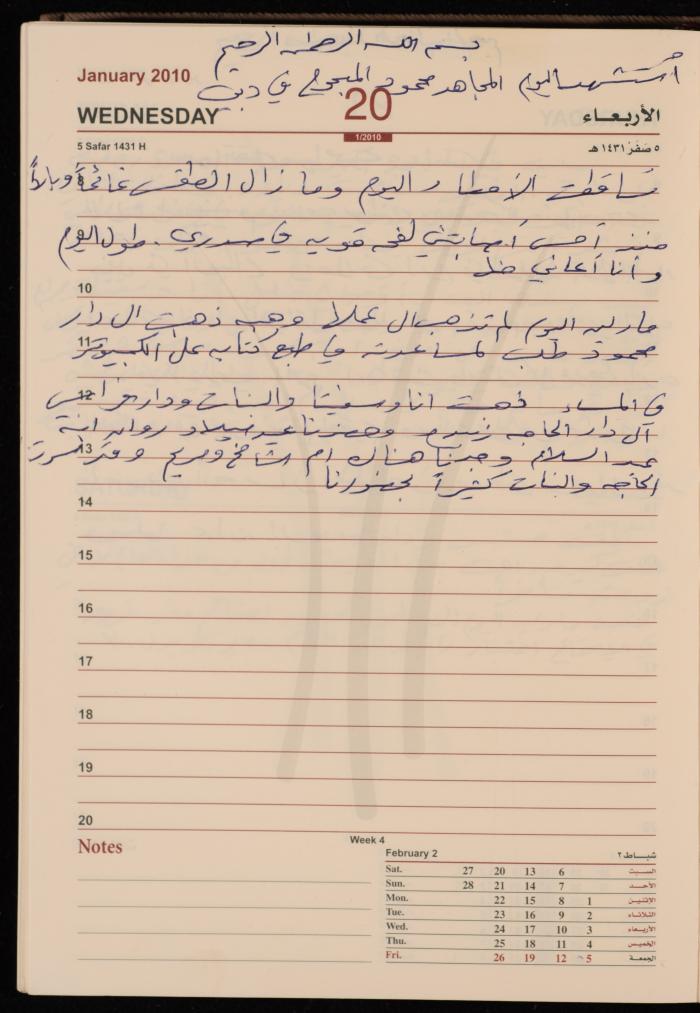 بسم الله الرحمن الرحيم
استشهد اليوم المجاهد محمود المبحوح في دبي
January 2010
20
WEDNESDAY
الأربعاء
1/2010
5 Safar 1431 H
٥ صفر ١٤٣١ هـ
تساقطت الأمطار اليوم وما زال الطقس غائماً وبارداً
منذ أمس أصابتني لفحه قويه في صدري . طول اليوم
وأنا أعاني منها
10
مارلين اليوم لم تذهب ال عملها وهبه ذهبت ال دار
11
محمود طلب لمساعدته في طبع كتابه على الكمبيوتر
12
في المساء ذهبت انا و والبنات ودار
ال دار الحاجه وحضرنا عيد ميلاد روان ابنة
13
عبد السلام وجدنا هناك ام الشاخ ومريم وقد سررت
الحاجه والبنات كثيراً بحضورنا
14
15
16
17
18
19
20
Notes
Week 4
February 2
شباط ٢
Sat. 27 20 13 6 السبت
Sun. 28 21 14 7 الأحد
Mon. 22 15 8 1 الإثنين
Tue. 23 16 9 2 الثلاثاء
Wed. 24 17 10 3 الأربعاء
Thu. 25 18 11 4 الخميس
Fri. 26 19 12 5 الجمعة